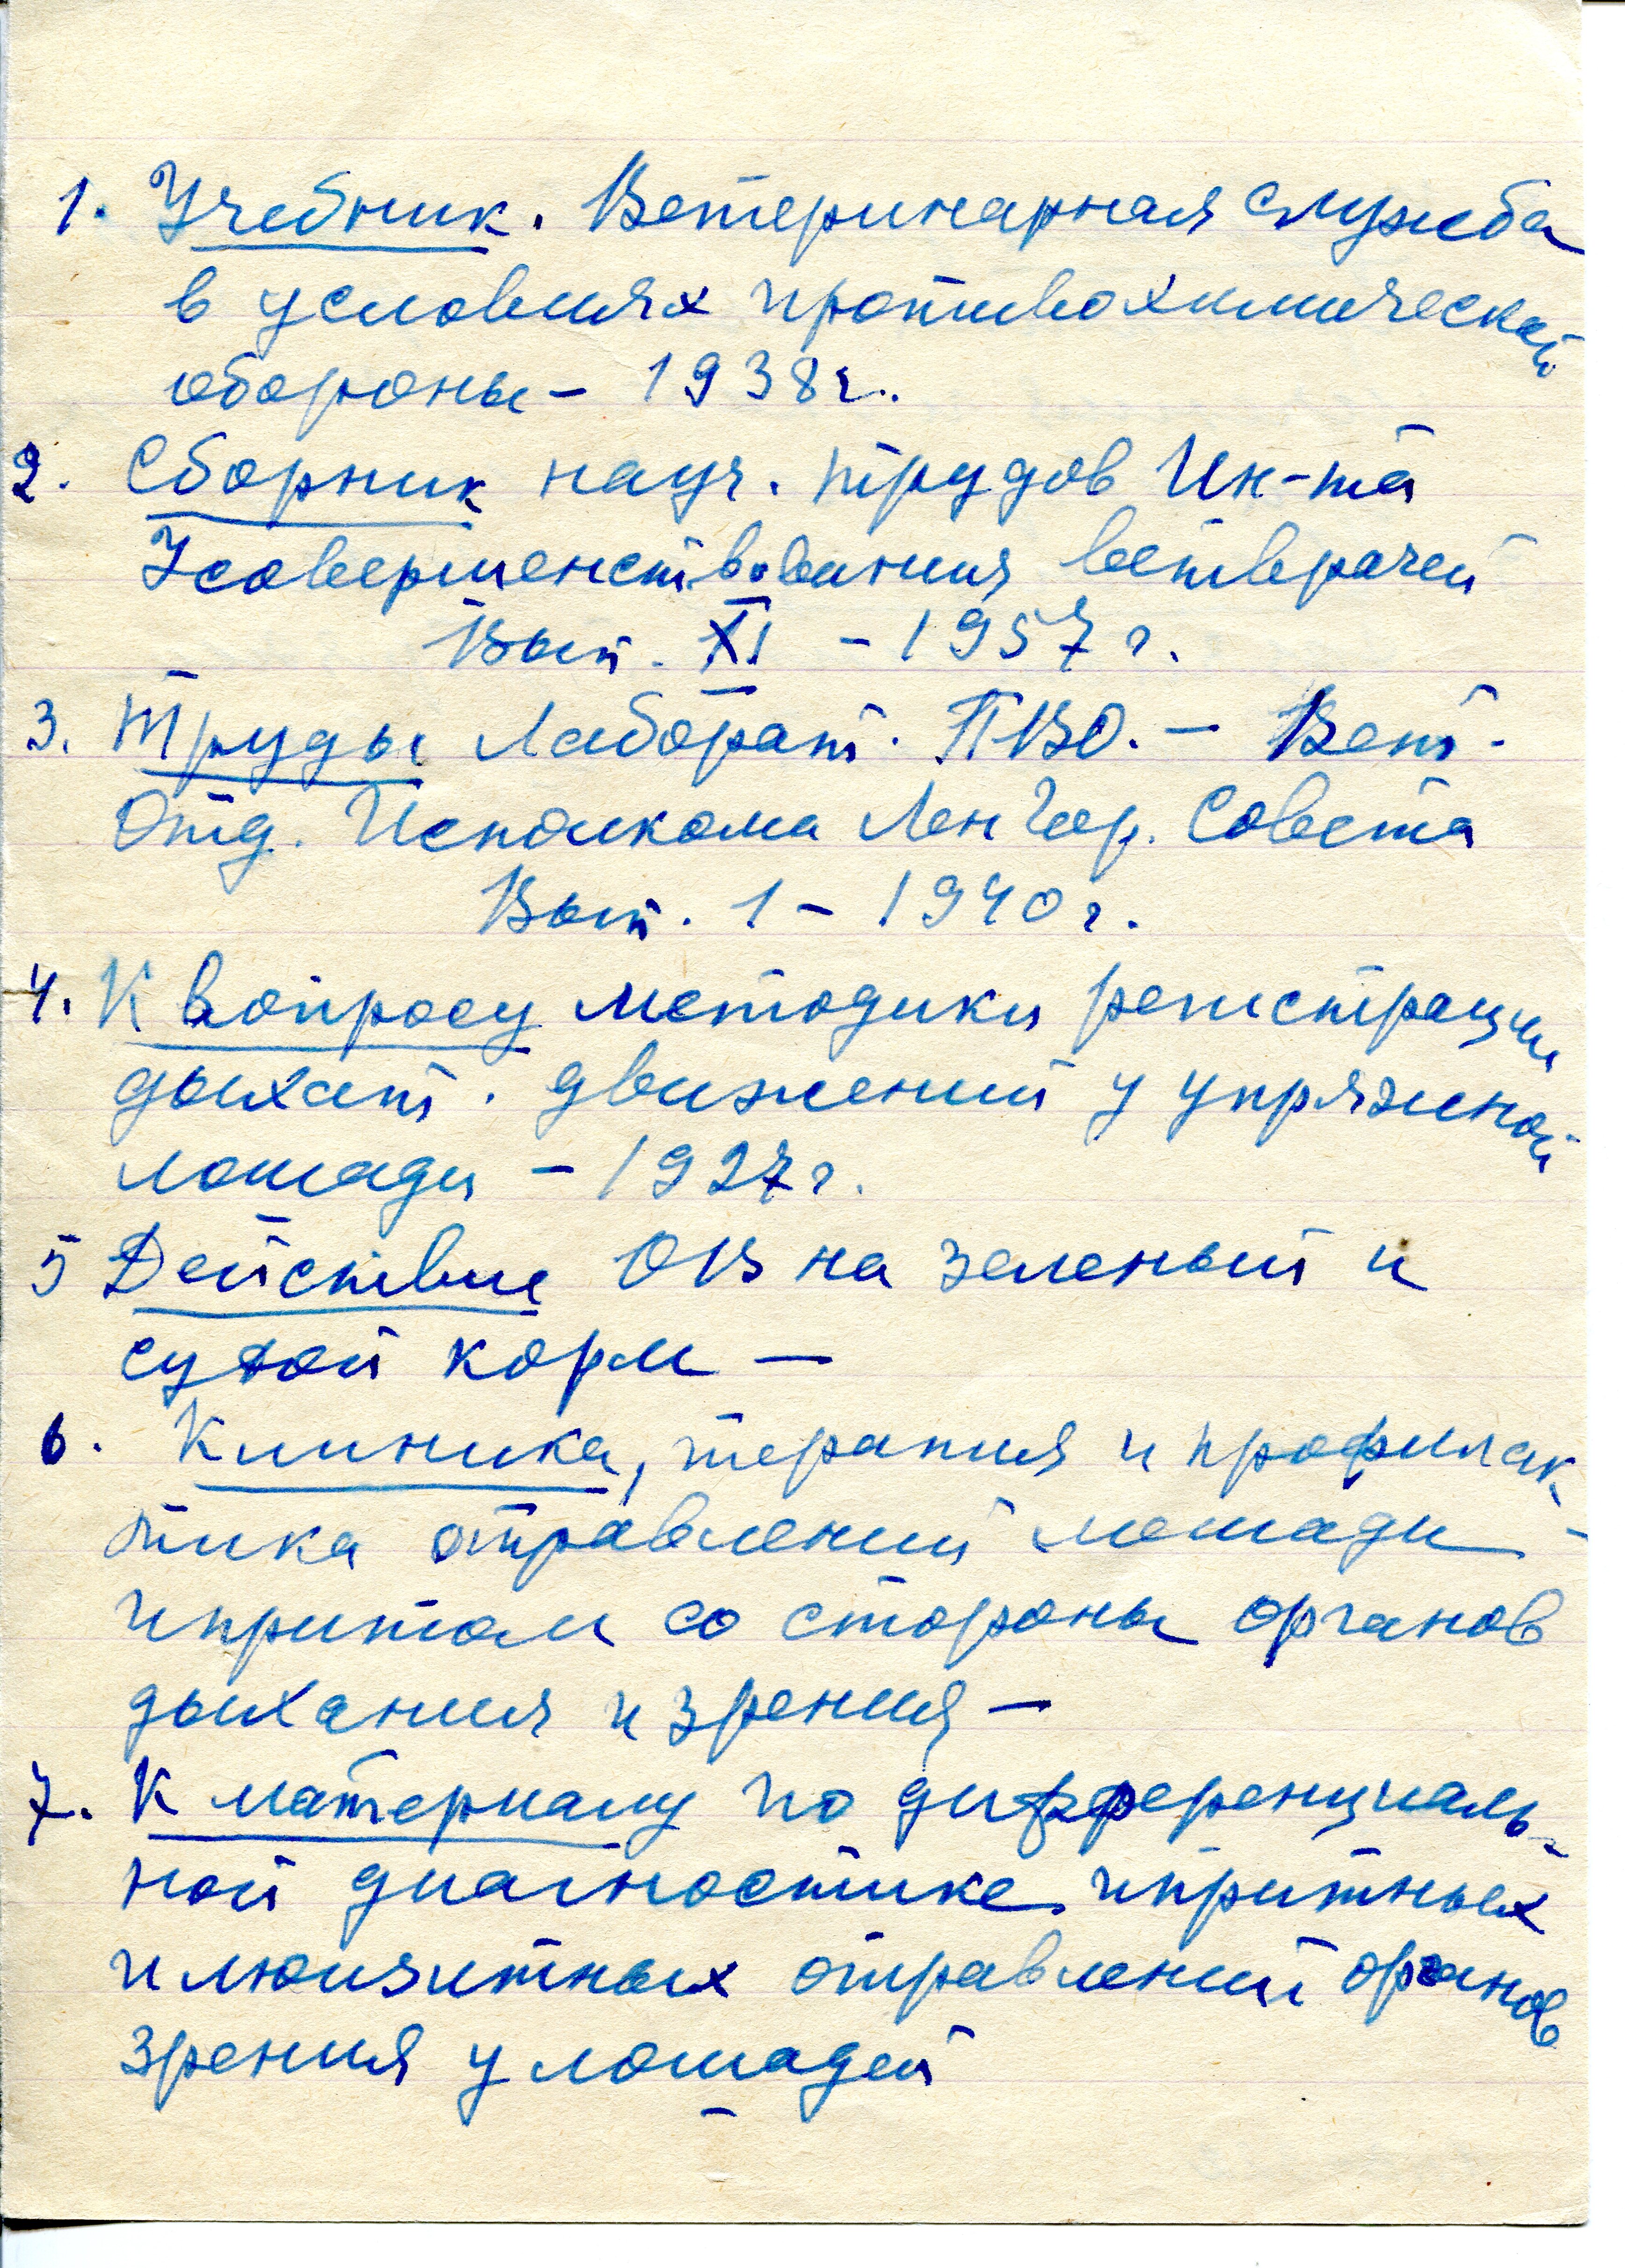 1. Учебник. Ветеринарная служба
в условиях противохимической
обороны – 1938 г.
2. Сборник науч. трудов Ин-та
Усовершенствования ветврачей
Вып. XI – 1957 г.
3. Труды Лаборат. ПВО. – Вет.
Отд. Исполкома ЛенГор. Совета
Вып. 1 – 1940 г.
4. К вопросу методики регистрации
дыхат. движений у упряжной
лошади – 1927 г.
5 Действие ОВ на зеленый и
сухой корм –
6. Клиника, терапия и профилак-
тика отравлений лошади –
ипритом со стороны органов
дыхания и зрения –
7. К материалу по дифференциаль-
ной диагностике ипритных
и люизитных отравлений органов
зрения у лошадей
–